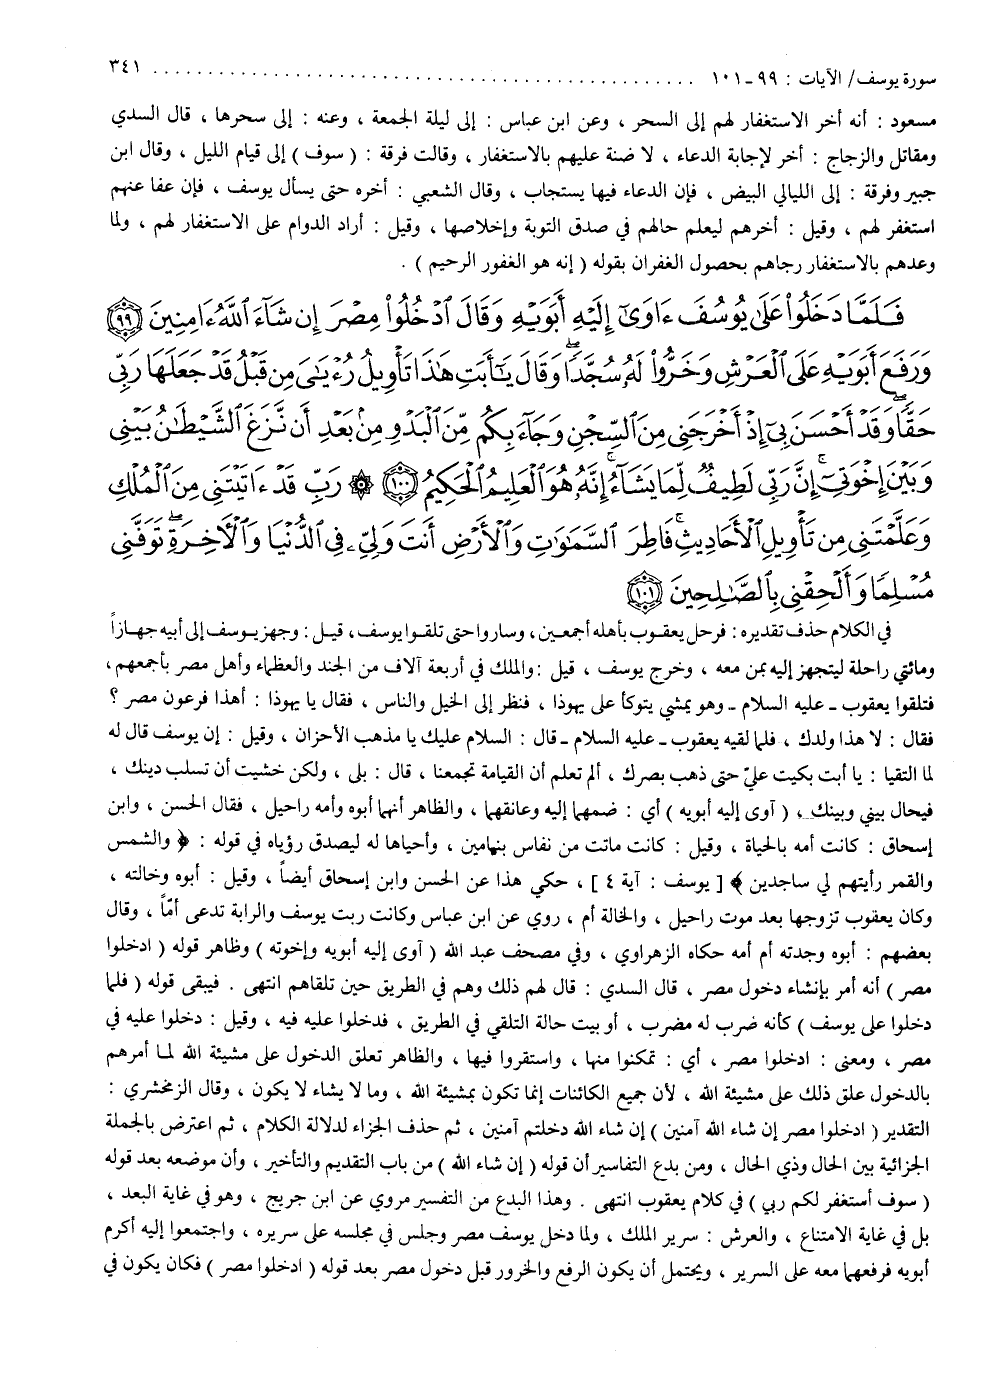 سورة يوسف/ الآيات : ٩٩ -١٠١ ............................................................ ٣٤١
مسعود : أنه أخر الاستغفار لهم إلى السحر ، وعن ابن عباس : إلى ليلة الجمعة ، وعنه : إلى سحرها ، قال السدي
ومقاتل والزجاج : أخر لإجابة الدعاء ، لا ضنة عليهم بالاستغفار ، وقالت فرقة : ( سوف ) إلى قيام الليل ، وقال ابن
جبير وفرقة : إلى الليالي البيض ، فإن الدعاء فيها يستجاب ، وقال الشعبي : أخره حتى يسأل يوسف ، فإن عفا عنهم
استغفر لهم ، وقيل : أخرهم ليعلم حالهم في صدق التوبة وإخلاصها ، وقيل : أراد الدوام على الاستغفار لهم ، ولما
وعدهم بالاستغفار رجاهم بحصول الغفران بقوله ( إنه هو الغفور الرحيم ) .
فَلَمَّا دَخَلُوا۟ عَلَىٰ يُوسُفَ ءَاوَىٰٓ إِلَيْهِ أَبَوَيْهِ وَقَالَ ٱدْخُلُوا۟ مِصْرَ إِن شَآءَ ٱللَّهُ ءَامِنِينَ ٩٩
وَرَفَعَ أَبَوَيْهِ عَلَى ٱلْعَرْشِ وَخَرُّوا۟ لَهُۥ سُجَّدًۭا ۖ وَقَالَ يَٰٓأَبَتِ هَٰذَا تَأْوِيلُ رُءْيَٰىَ مِن قَبْلُ قَدْ جَعَلَهَا رَبِّى
حَقًّۭا ۖ وَقَدْ أَحْسَنَ بِىٓ إِذْ أَخْرَجَنِى مِنَ ٱلسِّجْنِ وَجَآءَ بِكُم مِّنَ ٱلْبَدْوِ مِنۢ بَعْدِ أَن نَّزَغَ ٱلشَّيْطَٰنُ بَيْنِى
وَبَيْنَ إِخْوَتِىٓ ۚ إِنَّ رَبِّى لَطِيفٌۭ لِّمَا يَشَآءُ ۚ إِنَّهُۥ هُوَ ٱلْعَلِيمُ ٱلْحَكِيمُ ١٠٠ ۞ رَبِّ قَدْ ءَاتَيْتَنِى مِنَ ٱلْمُلْكِ
وَعَلَّمْتَنِى مِن تَأْوِيلِ ٱلْأَحَادِيثِ ۚ فَاطِرَ ٱلسَّمَٰوَٰتِ وَٱلْأَرْضِ أَنتَ وَلِىِّۦ فِى ٱلدُّنْيَا وَٱلْءَاخِرَةِ ۖ تَوَفَّنِى
مُسْلِمًۭا وَأَلْحِقْنِى بِٱلصَّٰلِحِينَ ١٠١
في الكلام حذف تقديره : فرحل يعقوب بأهله أجمعين، وساروا حتى تلقوا يوسف، قيل : وجهز يوسف إلى أبيه جهازاً
ومائتي راحلة ليتجهز إليه بمن معه ، وخرج يوسف ، قيل :والملك في أربعة آلاف من الجند والعظماء وأهل مصر بأجمعهم،
فتلقوا يعقوب - عليه السلام - وهو يمشي يتوكأ على يهوذا ، فنظر إلى الخيل والناس ، فقال يا يهوذا : أهذا فرعون مصر ؟
فقال : لا هذا ولدك ، فلما لقيه يعقوب - عليه السلام - قال : السلام عليك يا مذهب الأحزان ، وقيل : إن يوسف قال له
لما التقيا : يا أبت بكيت عليّ حتى ذهب بصرك ، ألم تعلم أن القيامة تجمعنا ، قال : بلى ، ولكن خشيت أن تسلب دينك ،
فيحال بيني وبينك ، ( آوى إليه أبويه ) أي : ضمهما إليه وعانقهما ، والظاهر أنهما أبوه وأمه راحيل ، فقال الحسن ، وابن
إسحاق : كانت أمه بالحياة ، وقيل : كانت ماتت من نفاس بنيامين ، وأحياها له ليصدق رؤياه في قوله : ﴿ والشمس
والقمر رأيتهم لي ساجدين ﴾ [ يوسف : آية ٤ ] ، حكي هذا عن الحسن وابن إسحاق أيضاً ، وقيل : أبوه وخالته ،
وكان يعقوب تزوجها بعد موت راحيل ، والخالة أم ، روي عن ابن عباس وكانت ربت يوسف والرابة تدعى أمّاً ، وقال
بعضهم : أبوه وجدته أم أمه حكاه الزهراوي ، وفي مصحف عبد الله ( آوى إليه أبويه وإخوته ) وظاهر قوله ( ادخلوا
مصر ) أنه أمر بإنشاء دخول مصر ، قال السدي : قال لهم ذلك وهم في الطريق حين تلقاهم انتهى . فيبقى قوله ( فلما
دخلوا على يوسف ) كأنه ضرب له مضرب ، أو بيت حالة التلقي في الطريق ، فدخلوا عليه فيه ، وقيل : دخلوا عليه في
مصر ، ومعنى : ادخلوا مصر ، أي : تمكنوا منها ، واستقروا فيها ، والظاهر تعلق الدخول على مشيئة الله لما أمرهم
بالدخول علق ذلك على مشيئة الله ، لأن جميع الكائنات إنما تكون بمشيئة الله ، وما لا يشاء لا يكون ، وقال الزمخشري :
التقدير ( ادخلوا مصر إن شاء الله آمنين ) إن شاء الله دخلتم آمنين ، ثم حذف الجزاء لدلالة الكلام ، ثم اعترض بالجملة
الجزائية بين الحال وذي الحال ، ومن بدع التفاسير أن قوله ( إن شاء الله ) من باب التقديم والتأخير ، وأن موضعه بعد قوله
( سوف أستغفر لكم ربي ) في كلام يعقوب انتهى . وهذا البدع من التفسير مروي عن ابن جريج ، وهو في غاية البعد ،
بل في غاية الامتناع ، والعرش : سرير الملك ، ولما دخل يوسف مصر وجلس في مجلسه على سريره ، واجتمعوا إليه أكرم
أبويه فرفعهما معه على السرير ، ويحتمل أن يكون الرفع والخرور قبل دخول مصر بعد قوله ( ادخلوا مصر ) فكان يكون في